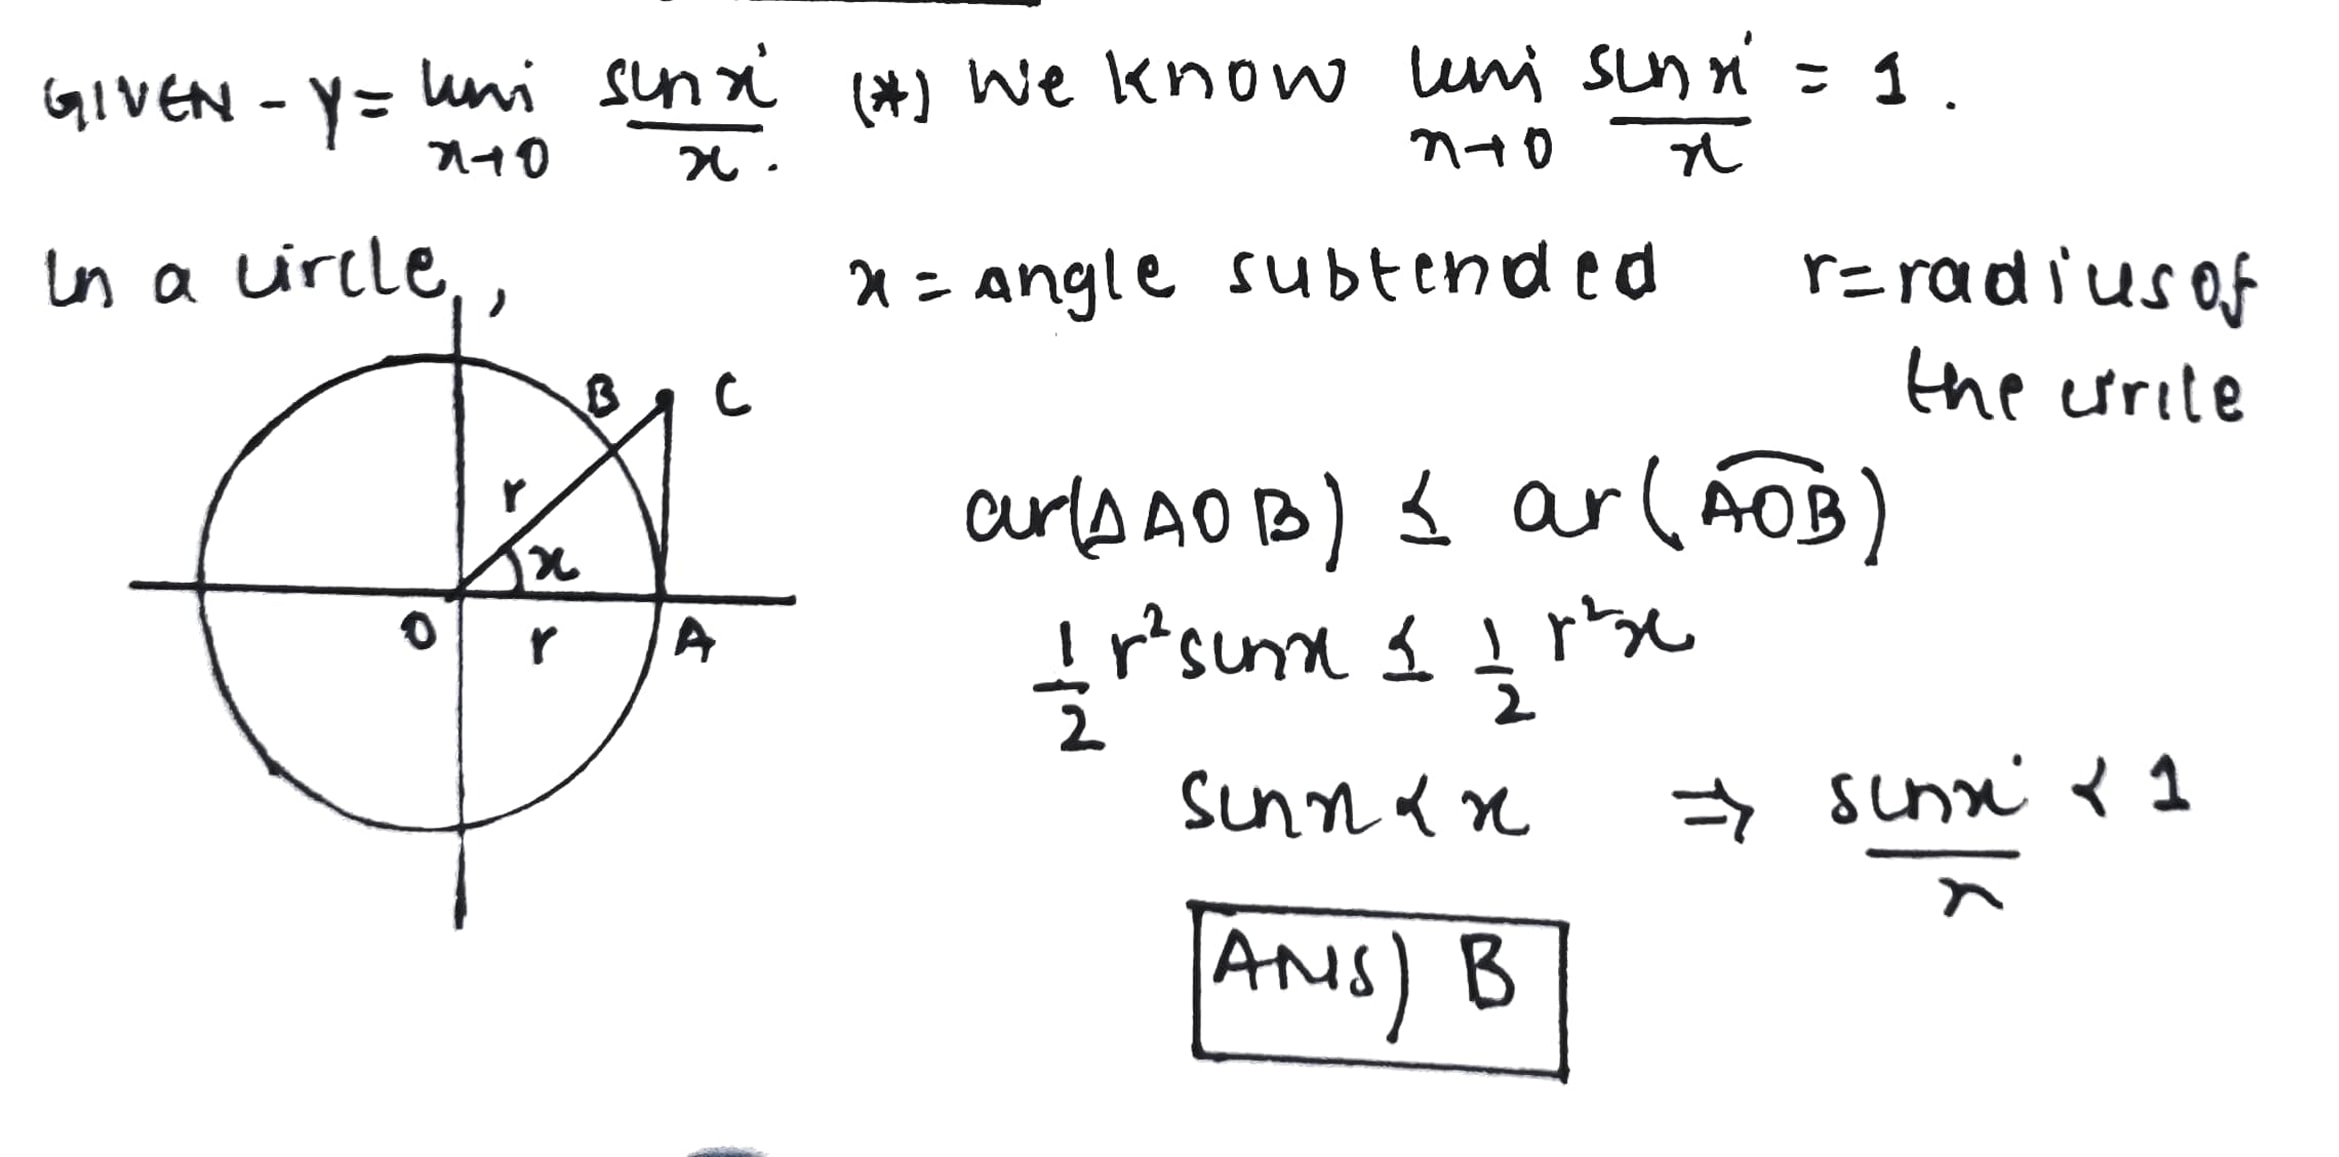 GIVEN - y = lim x→0 sin x / x. (*) We know lim x→0 sin x / x = 1.
In a circle, x = angle subtended r = radius of the circle
B C
r
x
O r A
ar(Δ AOB) ≤ ar(AOB)
1/2 r² sin x ≤ 1/2 r² x
sin x < x ⇒ sin x / x < 1
ANS) B